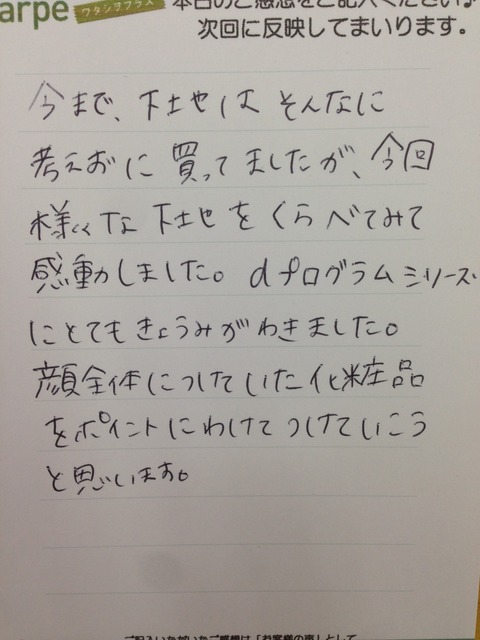 arpe ワタシヲプラス 本日のご感想をご記入ください♪
次回に反映してまいります。
今まで、下地は そんなに
考えおに 買ってましたが、今回
様々な 下地を くらべてみて
感動しました。 dプログラムシリーズ
にとてもきょうみがわきました。
顔全体につけていた化粧品
をポイントにわけてつけていこう
と思います。
ご記入いただいたご感想は「お客様の声」として